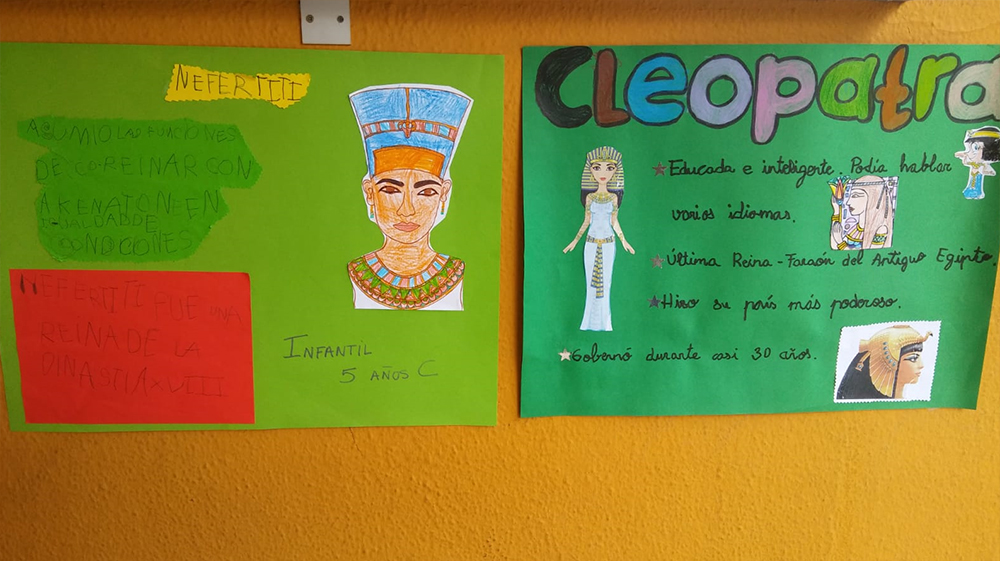 NEFERTITI
ASUMIO LAS FUNCIONES
DE CO-REINAR CON
AKENATON EN
IGUALDAD DE
CONDICONES
NEFERTITI FUE UNA
REINA DE LA
DINASTIA XVIII
INFANTIL
5 AÑOS C
Cleopatra
Educada e inteligente. Podía hablar
varios idiomas.
Última Reina-Faraón del Antiguo Egipto.
Hizo su país más poderoso.
Gobernó durante casi 30 años.